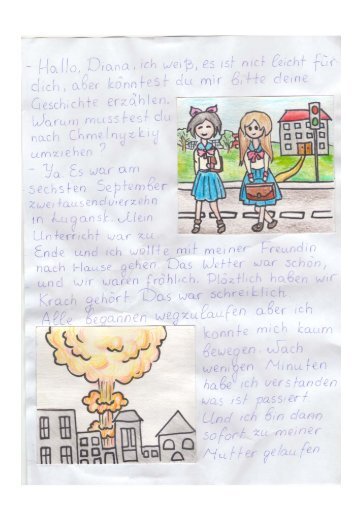 - Hallo, Diana, ich weiß, es ist nict leicht für
dich, aber könntest du mir bitte deine
Geschichte erzählen.
Warum musstest du
nach Chmelnyzkiy
umziehen?
- Ya Es war am
sechsten September
zweitausendvierzehn
in Lugansk. Mein
Unterricht war zu
Ende und ich wollte mit meiner Freundin
nach Hause gehen. Das Wetter war schön,
und wir waren fröhlich. Plöztlich haben wir
Krach gehört. Das war schreiblich.
Alle begannen wegzulaufen aber ich
konnte mich kaum
bewegen. Nach
wenigen Minuten
habe ich verstanden
was ist passiert.
Und ich bin dann
sofort zu meiner
Mutter gelaufen